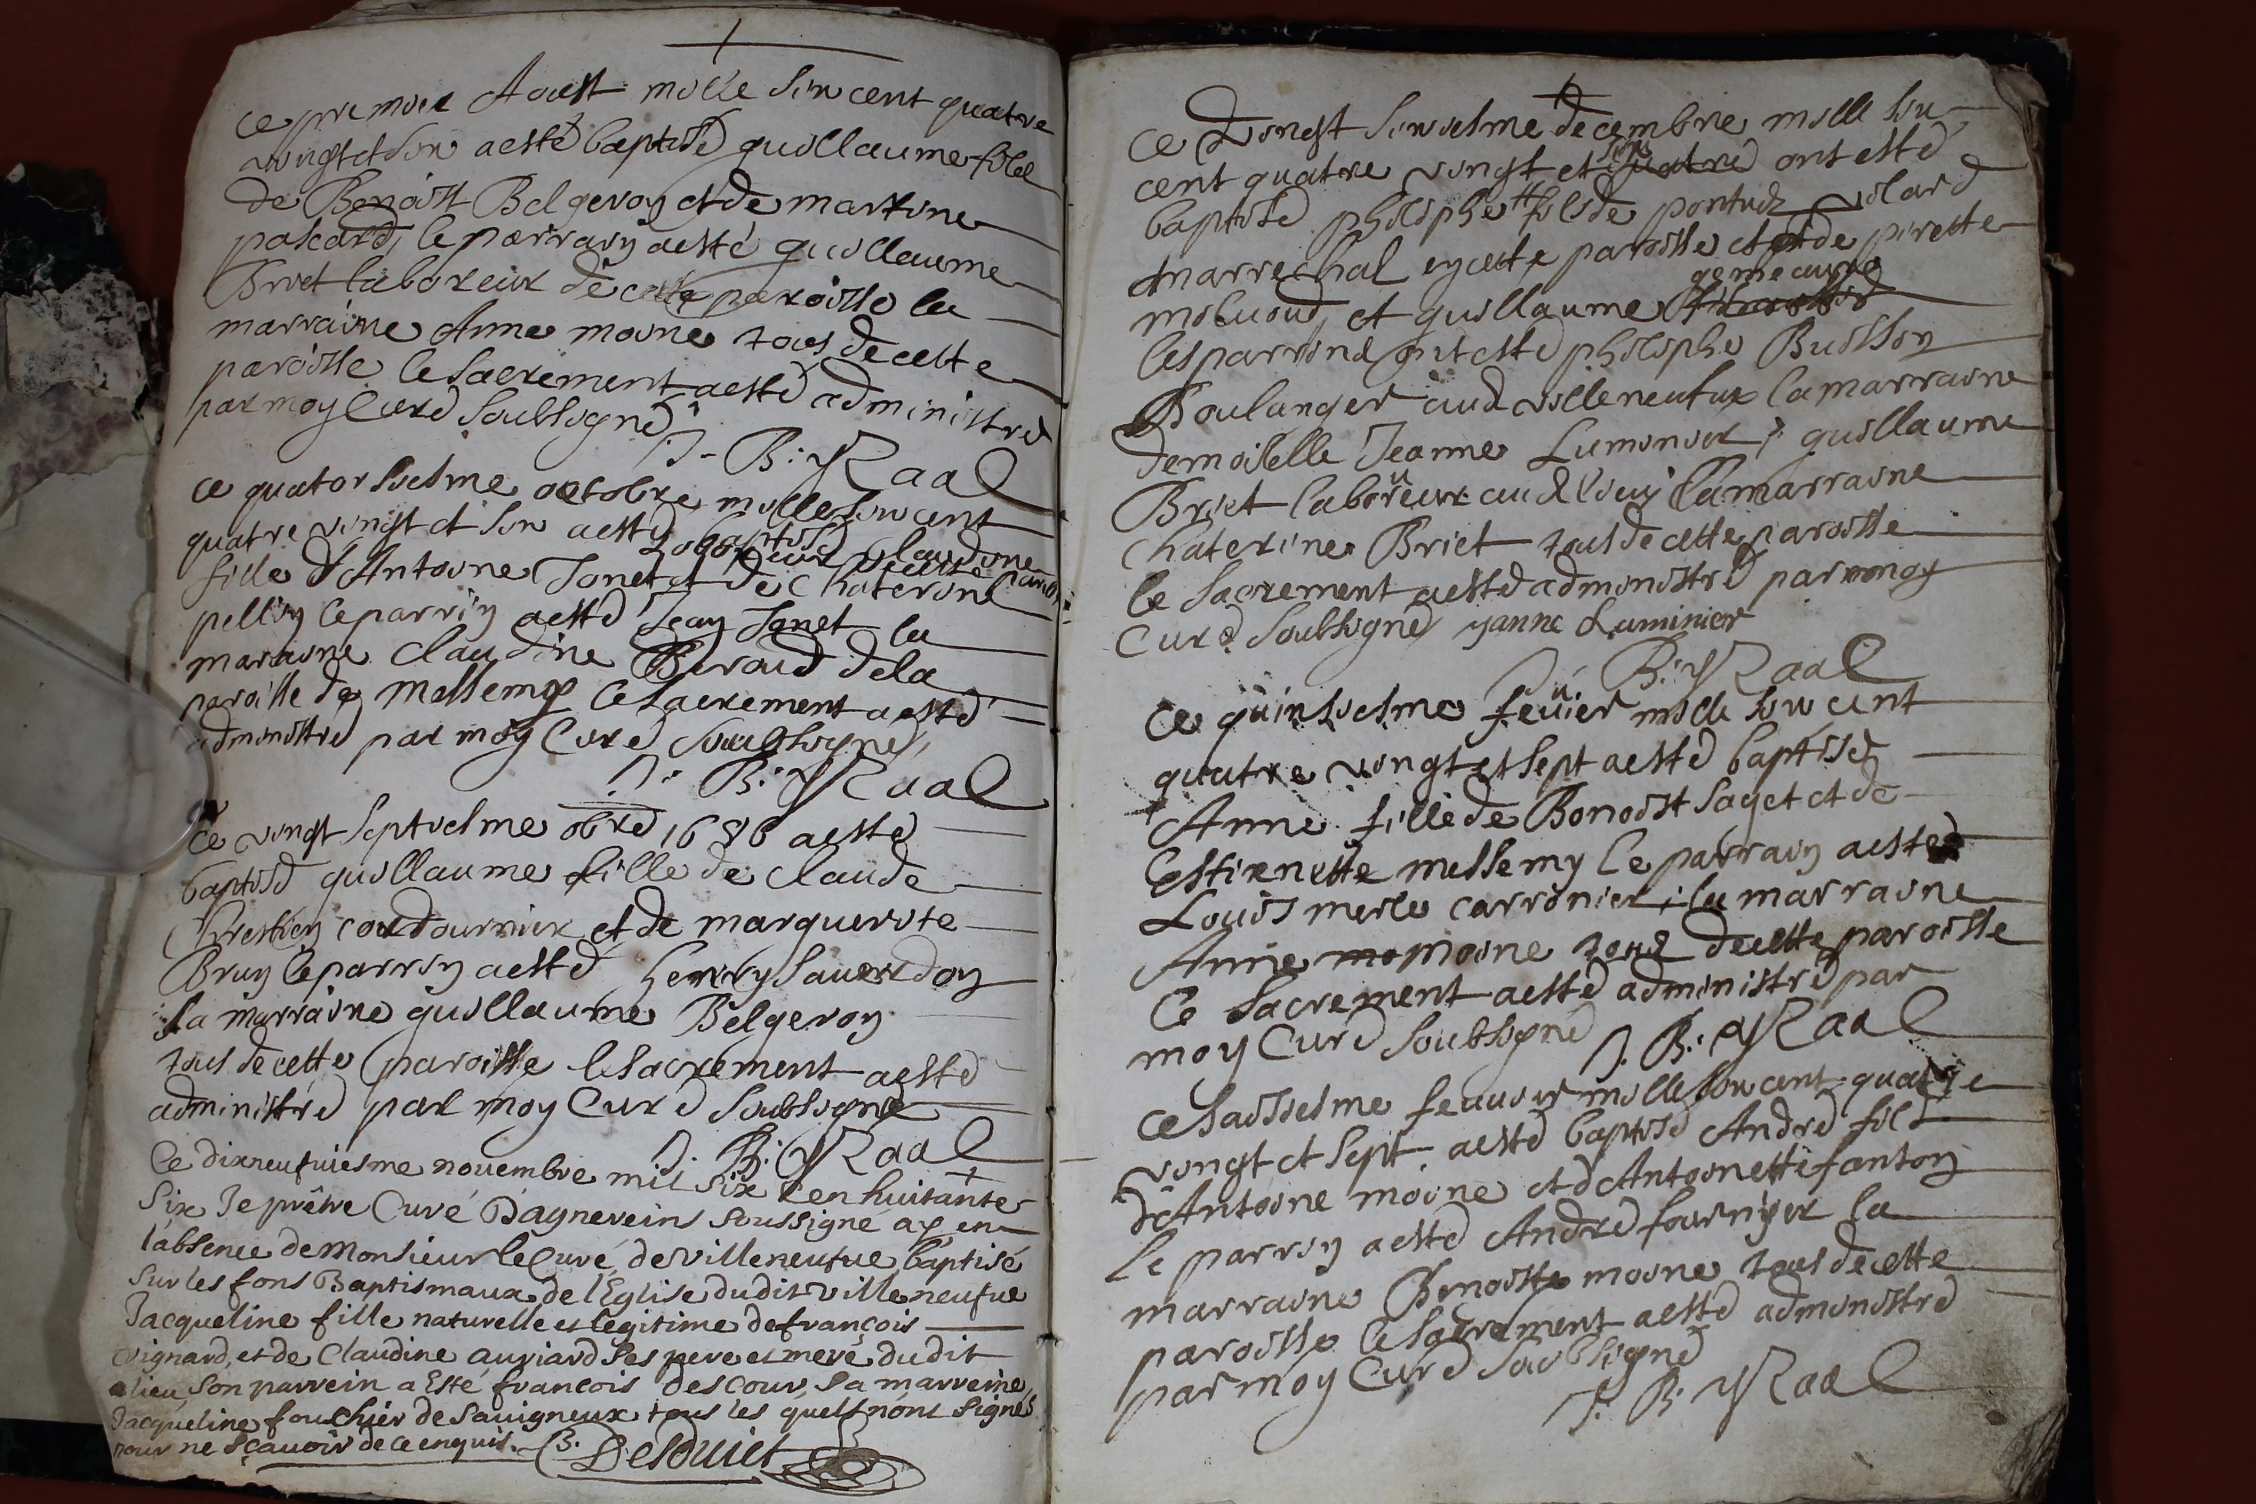 ce premier Aoust mille six cent quatre
vingt et six a esté baptisé guillaume fille
de Benoist Belgeron et de martine
pascard, le parrain a esté guillaume
Briet laboreur de cette paroisse la
marraine Anne moine tous de cette
paroisse le sacrement a esté administré
par moy Curé soubsigné
J. B. Yzaal
ce quatorsiesme octobre mille six cent
quatre vingt et six a esté baptisé claudine
fille d'Antoine Jonet et de Chaterine
pellin le parrin a esté Jean Jonet la
maraine claudine Beraud de la
paroisse de Messemy le sacrement a esté
administré par moy Curé soubsigné,
J. B. Yzaal
ce vingt septiesme obre 1686 a esté
baptisé guillaume fille de claude
Chrestien cordournier et de marguerite
Brun le parrin a esté henry sauerdon
la marraine guillaume Belgeron
tous de cette paroisse le sacrement a esté
administré par moy Curé soubsigné
J. B. Yzaal
Ce dixneufuiesme nouembre mil six cen huitante
six Je prêtre Curé Dagnereins soussigné ay en
l'absence de Monsieur le Curé de Villeneufue baptisé
sur les fons Baptismaux de l'Eglise dudit Villeneufue
Jacqueline fille naturelle et legitime de françois
vignard, et de Claudine auriard ses pere et mere dudit
lieu son parrein a Esté francois descour, sa marreine
Jacqueline fouchier de Sauigneux tous les quels n'ont signé
pour ne sçauoir de ce enquis. B. Desduiet
ce Vingt sixiesme decembre mille six
cent quatre vingt et six quatre ont esté
baptisé philiphe fils de pontus vilard
marrechal en cette paroisse et de pirette
moluoud, et guillaume gemeaux
les parrins ont esté philiphe Buisson
Boulanger aud villeneufue la marraine
demoiselle Jeanne Lumonier; guillaume
Briet laboureur aud lieu la marraine
Chaterine Briet tous de cette paroisse
le sacrement a esté administré par moy
Curé soubsigné yanne Luminier
J. B. Yzaal
ce quinsiesme feuier mille six cent
quatre vingt et sept a esté baptisé
Anne fille de Bonoist Sayet et de
Estiennette messemy le parrain a esté
Louis merle carronier; la marraine
Anne mo moine tous de cette paroisse
le sacrement a esté administré par
moy Curé soubsigné J. B. Yzaal
ce saisiesme feauier mille six cent quatre
vingt et sept a esté baptisé André fils
d'Antoine moine et d'Antoinette fanton
le parrin a esté André fournier la
marraine Benoiste moine tous de cette
paroisse le sacrement a esté administré
par moy Curé soubsigné
J. B. Yzaal